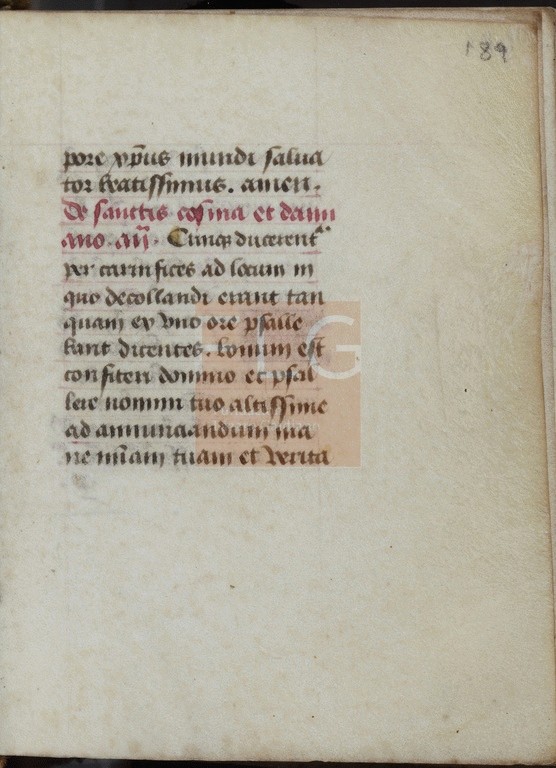 189
pore xp̄us mundi salua
tor beatissimus. amen.
De sanctis cosma et dami
ano. an̄. Cumq̧ ducerent᷑
per carnifices ad locum in
quo decollandi erant tan
quam ex vno ore psalle
bant dicentes. bonum est
confiteri domino et psal
lere nomini tuo altissime
ad annunciandum ma
ne mīam tuam et verita